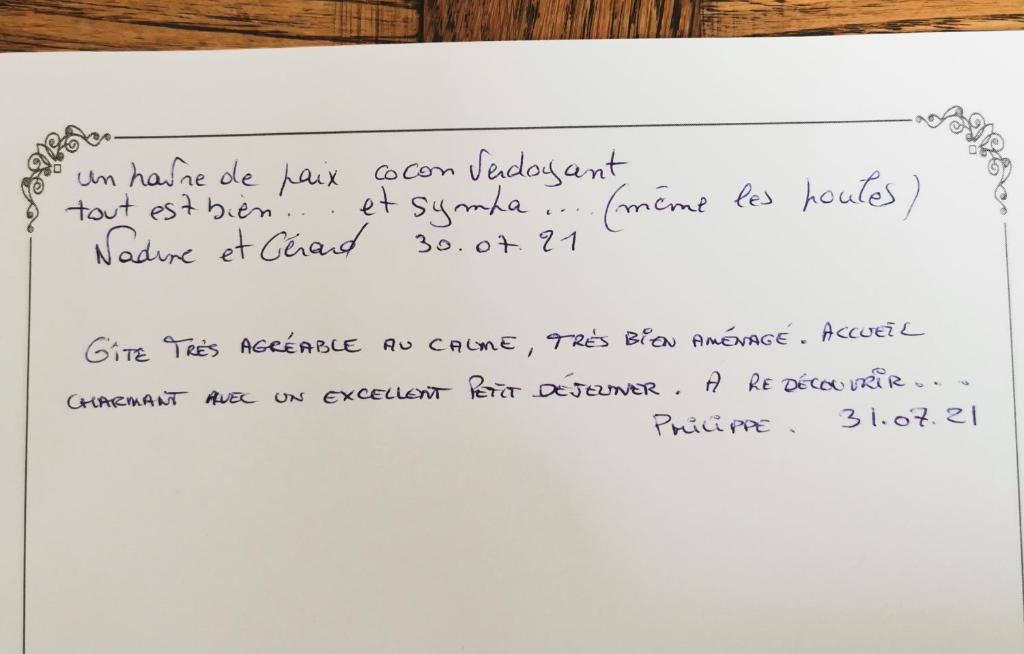 un havre de paix cocon verdoyant
tout est bien... et sympa .... (même les poules)
Nadine et Gérard 30.07.21
GÎTE TRÈS AGRÉABLE AU CALME, TRÈS BIEN AMÉNAGÉ. ACCUEIL
CHARMANT AVEC UN EXCELLENT PETIT DÉJEUNER. A REDÉCOUVRIR....
PHILIPPE. 31.07.21